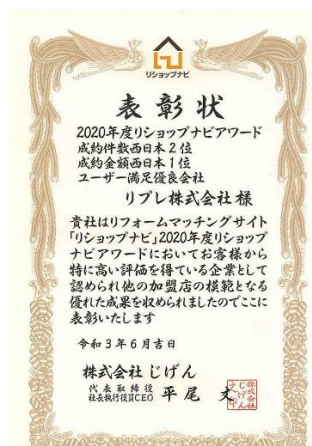 リショップナビ
表彰状
2020年度リショップナビアワード
成約件数西日本2位
成約金額西日本1位
ユーザー満足優良会社
リプレ株式会社様
貴社はリフォームマッチングサイト
「リショップナビ」2020年度リショップ
ナビアワードにおいてお客様から
特に高い評価を得ている企業として
認められ他の加盟店の模範となる
優れた成果を収められましたのでここに
表彰いたします
令和3年6月吉日
株式会社じげん
代表取締役
社長執行役員CEO 平尾 丈